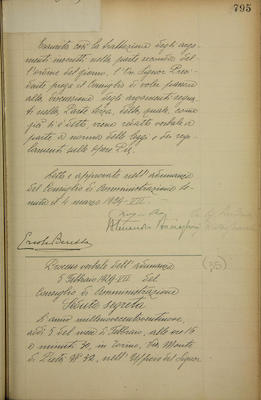 795
Esaurita così la trattazione degli argo-
menti inscritti nella parte seconda del-
l'ordine del giorno, l'Ill. Signor Presi-
dente prega il Consiglio di voler passare
alla discussione degli argomenti segna-
ti nella Parte terza, della quale, come
già si è detto, viene redatto verbale a
parte a norma delle leggi e dei rego-
lamenti sulle Opere Pie.
Letto e approvato nell'adunanza
del Consiglio di Amministrazione te-
nuta il 4 marzo 1929-VII.
(35)
Processo verbale dell'adunanza
5 Febbraio 1929-VII del
Consiglio di Amministrazione
Seduta segreta
L'anno millenovecentoventinove,
addì 5 del mese di Febbraio, alle ore 16
e minuti 30, in Torino, Via Monte
di Pietà N° 32, nell'Ufficio del Signor